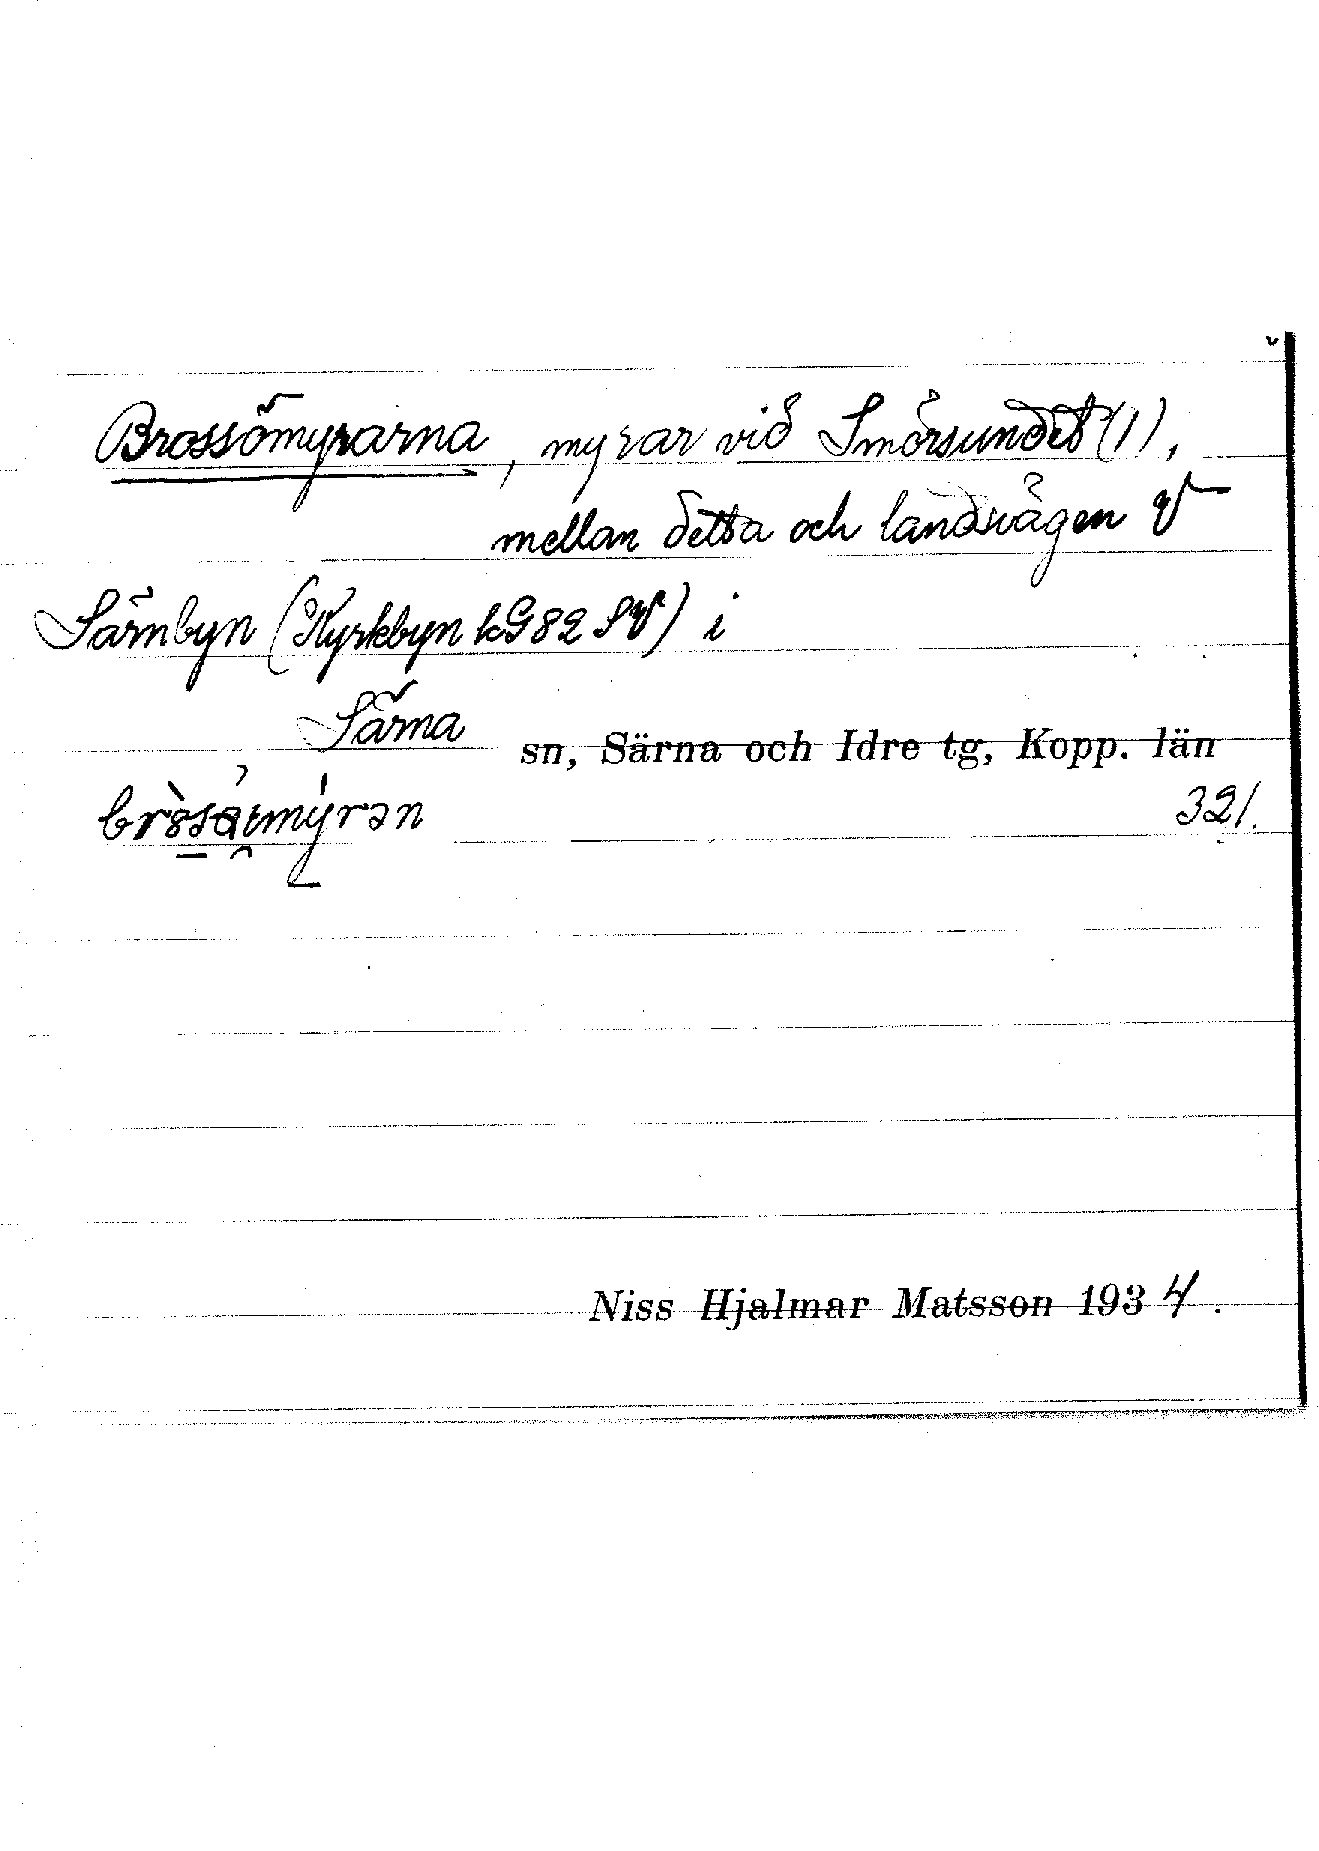 Brossömyrarna, myrar vid Smörsundet (1),
mellan detta och landsvägen V
Särnbyn (Kyrkbyn kG82 SV) i
Särna sn, Särna och Idre tg, Kopp. län
321.
Niss Hjalmar Matsson 1934.